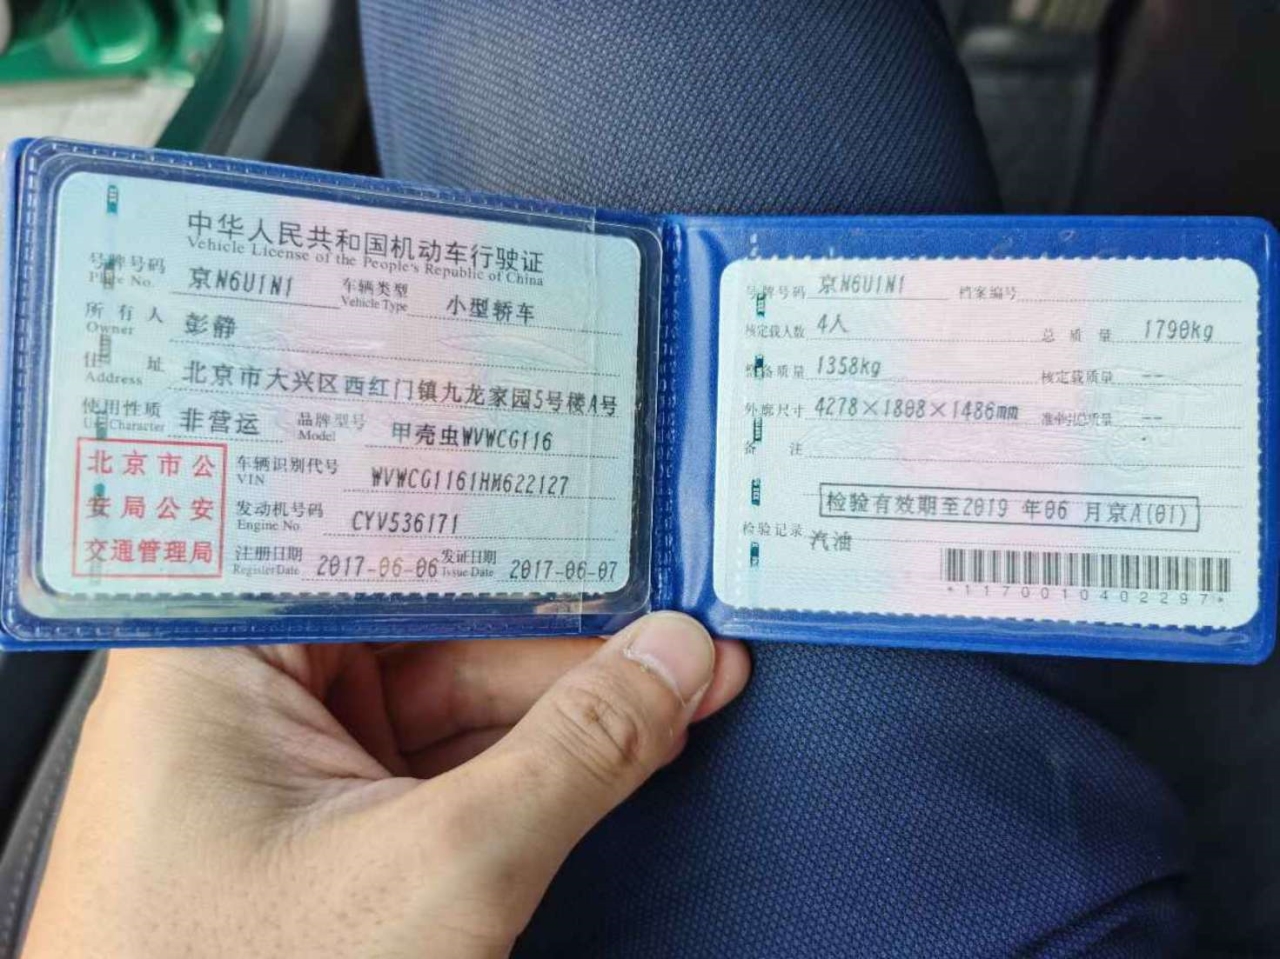 中华人民共和国机动车行驶证
Vehicle License of the People's Republic of China
号牌号码 京N6U1N1 车辆类型 小型轿车
Plate No. Vehicle Type
所有人 彭静
Owner
住址 北京市大兴区西红门镇九龙家园5号楼A号
Address
使用性质 非营运 品牌型号 甲壳虫WVWCG116
Use Character Model
北京市公
安局公安
交通管理局
车辆识别代号 WVWCG1161HM622127
VIN
发动机号码 CYV536171
Engine No.
注册日期 2017-06-06 发证日期 2017-06-07
Register Date Issue Date
号牌号码 京N6U1N1 档案编号
核定载人数 4人 总质量 1790kg
整备质量 1358kg 核定载质量 --
外廓尺寸 4278×1808×1486mm 准牵引总质量 --
备注
检验有效期至2019年06月京A(01)
检验记录 汽油
*1170010402297*